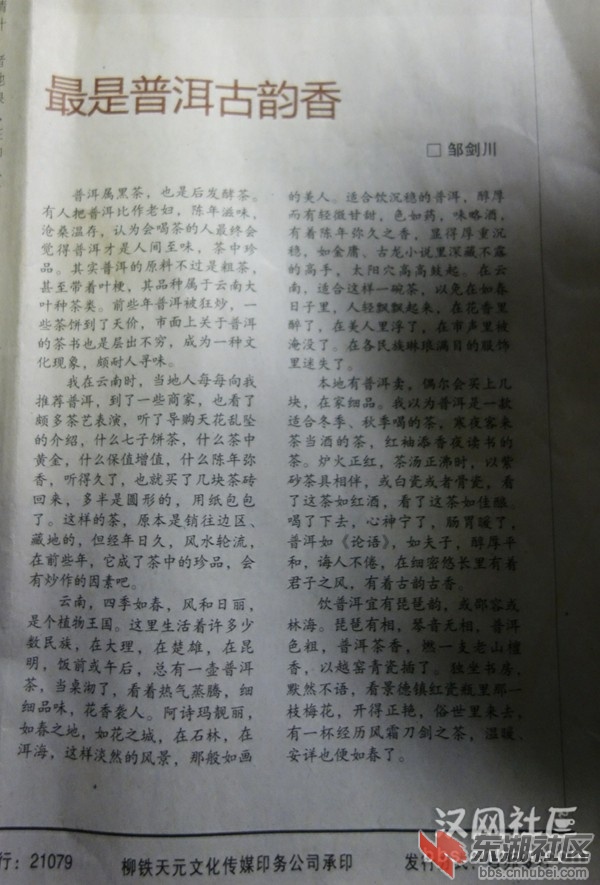 最是普洱古韵香
□ 邹剑川
普洱属黑茶，也是后发酵茶。
有人把普洱比作老妇，陈年滋味，
沧桑温存，认为会喝茶的人最终会
觉得普洱才是人间至味，茶中珍
品。其实普洱的原料不过是粗茶，
甚至带着叶梗，其品种属于云南大
叶种茶类。前些年普洱被狂炒，一
些茶饼到了天价，市面上关于普洱
的茶书也是层出不穷，成为一种文
化现象，颇耐人寻味。
我在云南时，当地人每每向我
推荐普洱，到了一些商家，也看了
颇多茶艺表演，听了导购天花乱坠
的介绍，什么七子饼茶，什么茶中
黄金，什么保值增值，什么陈年弥
香，听得久了，也就买了几块茶砖
回来，多半是圆形的，用纸包包
了。这样的茶，原本是销往边区、
藏地的，但经年日久，风水轮流，
在前些年，它成了茶中的珍品，会
有炒作的因素吧。
云南，四季如春，风和日丽，
是个植物王国。这里生活着许多少
数民族，在大理，在楚雄，在昆
明，饭前或午后，总有一壶普洱
茶，当桌沏了，看着热气蒸腾，细
细品味，花香袭人。阿诗玛靓丽，
如春之地，如花之城，在石林，在
洱海，这样淡然的风景，那般如画
的美人。适合饮沉稳的普洱，醇厚
而有轻微甘甜，色如药，味略酒，
有着陈年弥久之香，显得厚重沉
稳，如金庸、古龙小说里深藏不露
的高手，太阳穴高高鼓起。在云
南，适合这样一碗茶，以免在如春
日子里，人轻飘飘起来，在花香里
醉了，在美人里浮了，在市声里被
淹没了。在各民族琳琅满目的服饰
里迷失了。
本地有普洱卖，偶尔会买上几
块，在家细品。我以为普洱是一款
适合冬季、秋季喝的茶，寒夜客来
茶当酒的茶，红袖添香夜读书的
茶。炉火正红，茶汤正沸时，以紫
砂茶具相伴，或白瓷或者骨瓷，看
了这茶如红酒，看了这茶如佳酿，
喝了下去，心神宁了，肠胃暖了，
普洱如《论语》，如夫子，醇厚平
和，诲人不倦，在细密悠长里有着
君子之风，有着古韵古香。
饮普洱宜有琵琶韵，或邵容或
林海。琵琶有相，琴音无相，普洱
色粗，普洱茶香，燃一支老山檀
香，以越窑青瓷插了。独坐书房，
默然不语，看景德镇红瓷瓶里那一
枝梅花，开得正艳，俗世里来去，
有一杯经历风霜刀剑之茶，温暖、
安详也便如春了。
行：21079
柳铁天元文化传媒印务公司承印
汉网社区
东湖社区
bbs.cnhubei.com